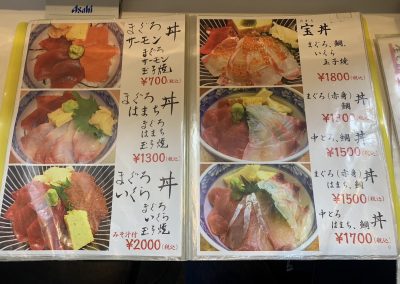 Asahi
まぐろ
サーモン 丼
まぐろ
サーモン
玉子焼
¥700(税込)
まぐろ
はまち 丼
まぐろ
はまち
玉子焼
¥1300(税込)
まぐろ
いくら 丼
まぐろ
いくら
玉子焼
みそ汁付 ¥2000(税込)
宝丼
まぐろ、鯛、
いくら
玉子焼
¥1800(税込)
まぐろ(赤身) 丼
鯛
(税込)
中とろ、鯛 丼
¥1500(税込)
まぐろ(赤身) 丼
はまち、鯛
¥1500(税込)
中とろ 丼
はまち、鯛
¥1700(税込)